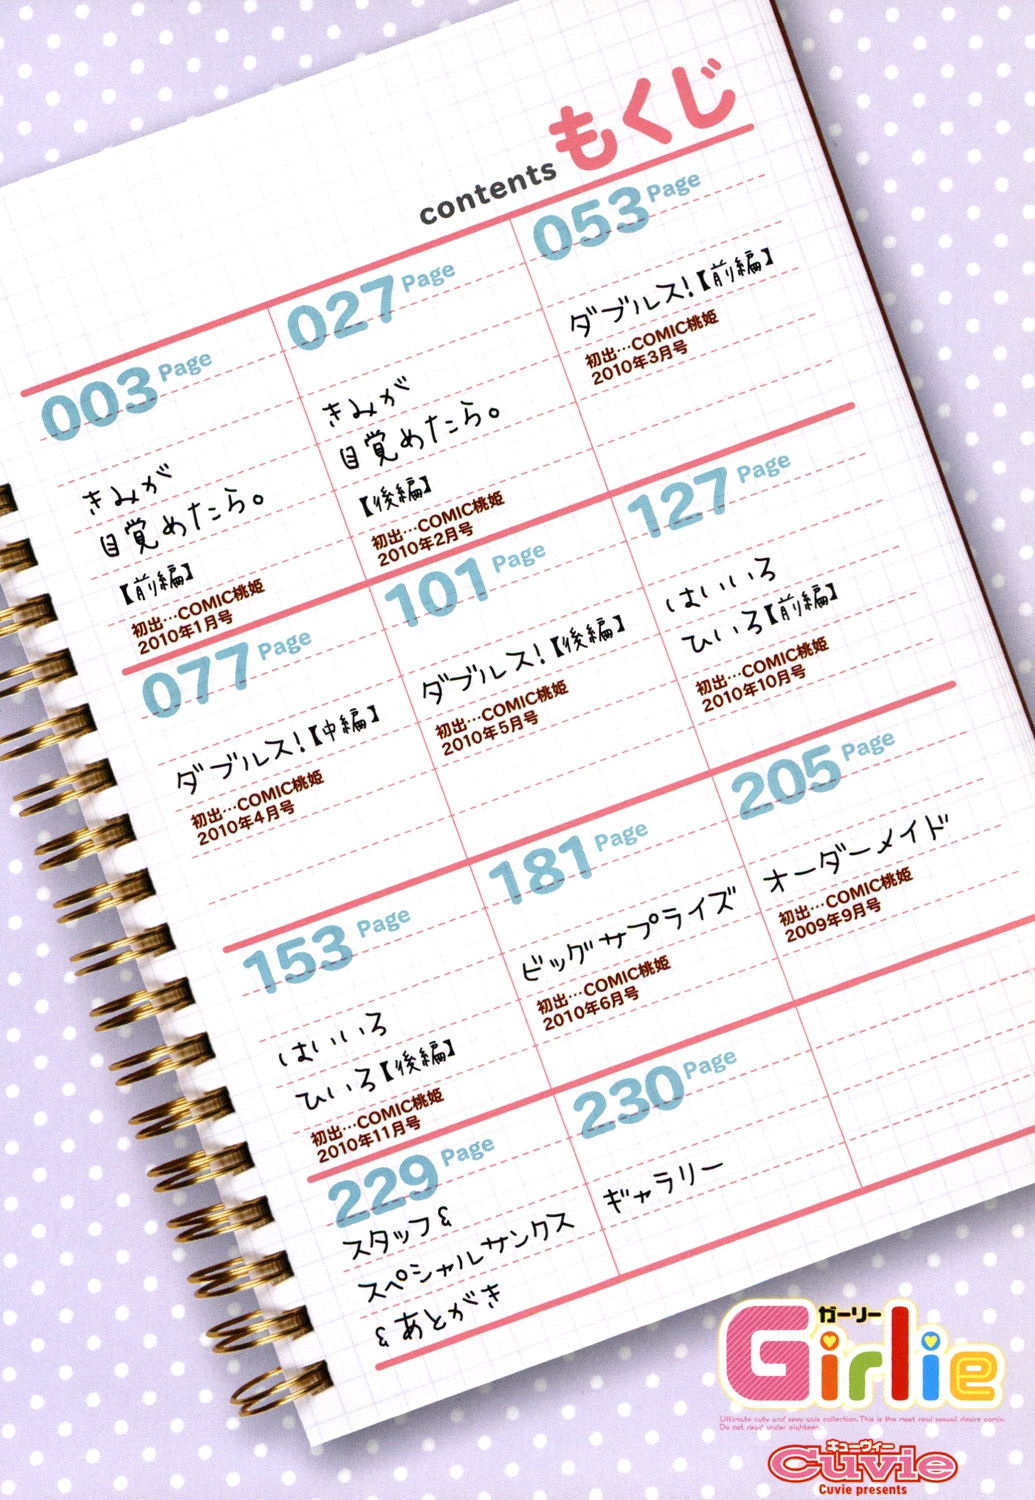 もくじ
contents
003 Page
きみが
目覚めたら。
【前編】
初出…COMIC桃姫
2010年1月号
027 Page
きみが
目覚めたら。
【後編】
初出…COMIC桃姫
2010年2月号
053 Page
ダブルス!【前編】
初出…COMIC桃姫
2010年3月号
077 Page
ダブルス!【中編】
初出…COMIC桃姫
2010年4月号
101 Page
ダブルス!【後編】
初出…COMIC桃姫
2010年5月号
127 Page
はいいろ
ひいろ【前編】
初出…COMIC桃姫
2010年10月号
153 Page
はいいろ
ひいろ【後編】
初出…COMIC桃姫
2010年11月号
181 Page
ビッグサプライズ
初出…COMIC桃姫
2010年6月号
205 Page
オーダーメイド
初出…COMIC桃姫
2009年9月号
229 Page
スタッフ&
スペシャルサンクス
&あとがき
230 Page
ギャラリー
ガーリー
Girlie
Ultimate cuty and sexy gals collection. This is the most real sexual desire comix.
Do not read under eighteen.
キューヴィー
Cuvie
Cuvie presents